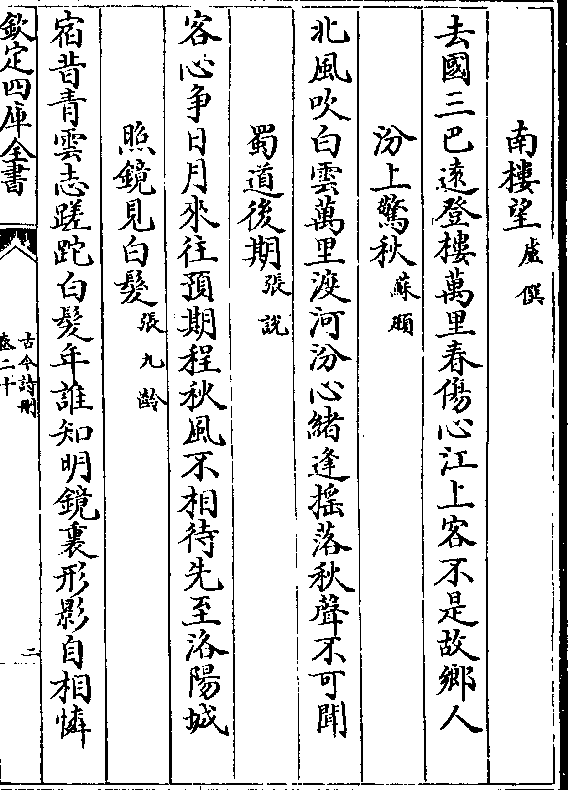 南樓望盧僎
去國三巴遠登樓萬里春傷心江上客不是故鄉人
汾上驚秋蘇頲
北風吹白雲萬里渡河汾心緒逢揺落秋聲不可聞
蜀道後期張說
客心争日月來往預期程秋風不相待先至洛陽城
照鏡見白髮張九齡
宿昔青雲志蹉跎白髮年誰知明鏡裏形影自相憐
欽定四庫全書
古今詩刪
卷二十
二